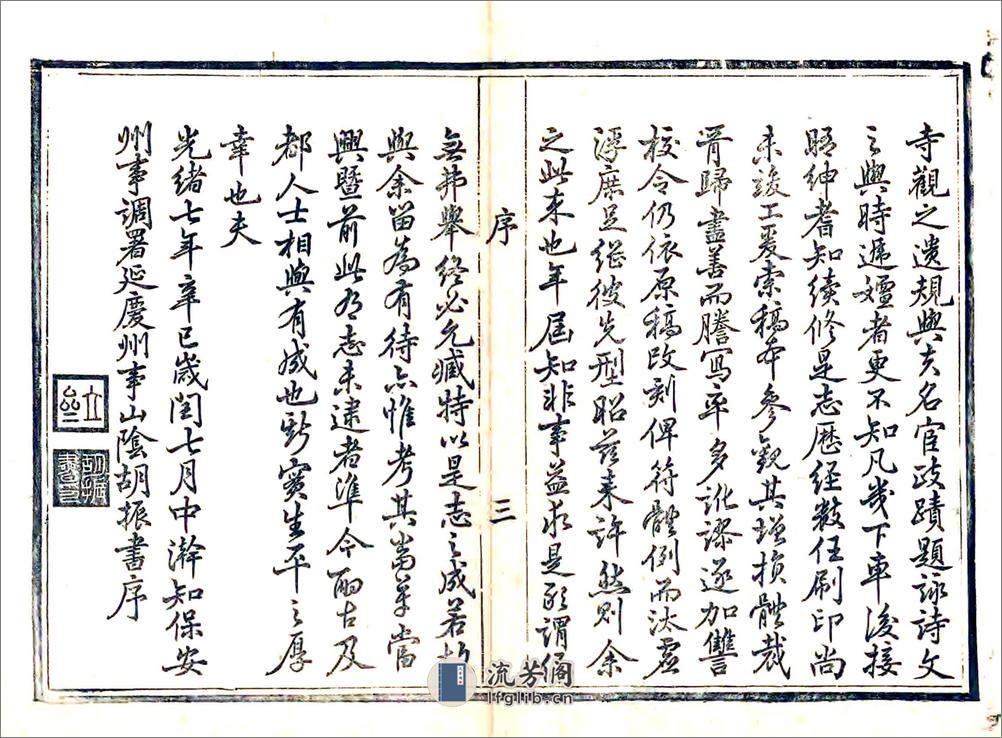 寺觀之遺規與夫名宦政蹟題詠詩文
之與時遞嬗者更不知凡幾下車後接
晤紳耆知續修是志歷經數任刷印尚
未竣工爰索稿本參觀其增損體裁
胥歸盡善而謄寫率多訛謬遂加讐
校令仍依原稿改刻俾符體例而汰虛
浮庶足繼彼先型昭茲來許然則余
之此來也年屆知非事益求是所謂
序
三
無弗舉終必允臧特以是志之成若
與余留為有待亦惟考其當革當
興暨前此有志未逮者準今酌古及
都人士相與有成也斯實生平之厚
幸也夫
光緒七年辛巳歲閏七月中澣知保安
州事調署延慶州事山陰胡振書序
胡振書
流芳阁
lfglib.cn